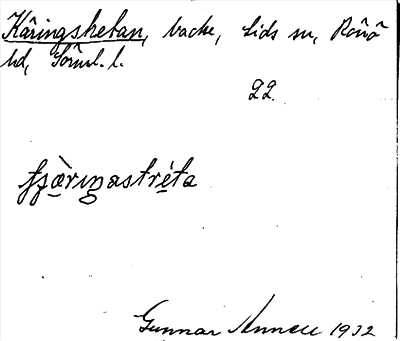 Käringshetan, backe, Lids sn, Rönö
hd, Sörml. l.
22.
Gunnar Annell 1932